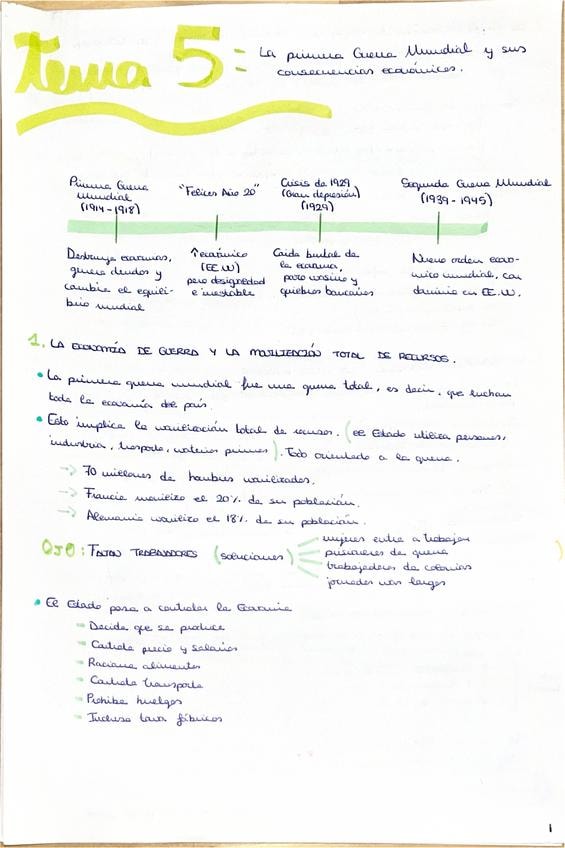 Tema 5 = La primera Guerra Mundial y sus
consecuencias económicas.
Primera Guerra
Mundial
(1914-1918)
"Felices Año 20"
Crisis de 1929
(Gran depresión)
(1929)
Segunda Guerra Mundial
(1939-1945)
Destruye economías,
genera deudas y
cambia el equili-
brio mundial
↑ económico
(EE.UU)
pero desigualdad
e inestable
Caida brutal de
la economía,
paro masivo y
quiebras bancarias
Nuevo orden econo-
mico mundial, con
dominio en EE.UU.
1. LA ECONOMÍA DE GUERRA Y LA MOVILIZACIÓN TOTAL DE RECURSOS.
• La primera guerra mundial fue una guerra total, es decir, que luchan
toda la economía del país.
• Esto implica la movilización total de recursos. (el Estado utiliza personas,
industria, trasporte, materias primas). Todo orientado a la guerra.
→ 70 millones de hombres movilizados.
→ Francia movilizo el 20% de su población.
→ Alemania movilizo el 18% de su población.
OJO: FALTAN TRABAJADORES (soluciones)
mujeres entra a trabajar
prisioneros de guerra
trabajadores de colonias
jornadas mas largas
• El Estado pasa a controlar la Economia
- Decide que se produce
- Controla precio y salarios
- Raciona alimentos
- Controla transporte
- Prohibe huelgas
- Incluso toma fábricas
1